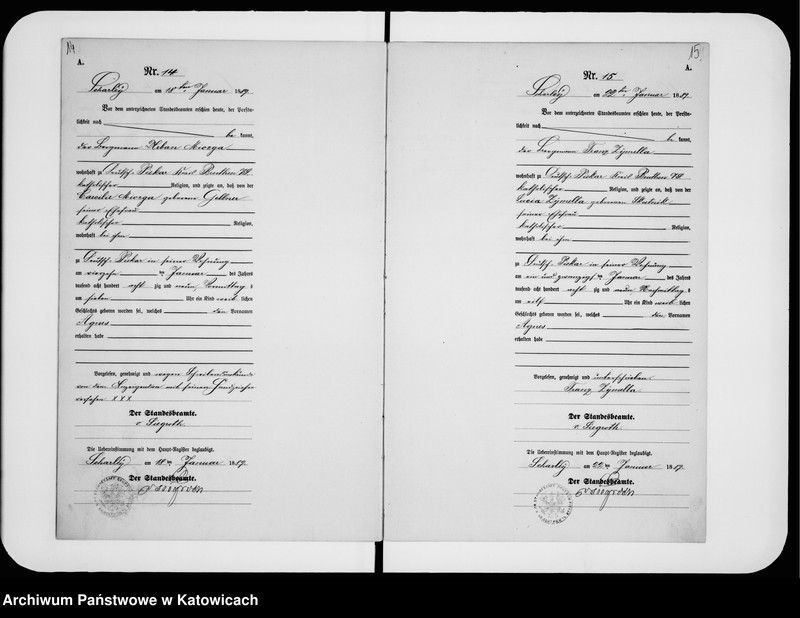 14
A.
Nr. 14
Scharley am 18ten Januar 1889.
Vor dem unterzeichneten Standesbeamten erschien heute, der Persön-
lichkeit nach
be kannt,
der Bergmann Urban
wohnhaft zu Deutsch Piekar Kreis Beuthen
katholischer Religion, und zeigte an, daß von der
geborene
seiner Ehefrau
katholischer Religion,
wohnhaft bei ihm
zu Deutsch Piekar in seiner Wohnung
am vierzehn ten Januar des Jahres
tausend acht hundert acht zig und neun Vormittag s
um sieben Uhr ein Kind weib lichen
Geschlechts geboren worden sei, welches den Vornamen
Agnes
erhalten habe
Vorgelesen, genehmigt und wegen Schreibensunkunde
von dem Anzeigenden mit seinem Handzeichen
versehen x x x
Der Standesbeamte.
Die Uebereinstimmung mit dem Haupt-Register beglaubigt.
Scharley am 18 ten Januar 1889.
Der Standesbeamte.
15
A.
Nr. 15
Scharley am 22ten Januar 1889.
Vor dem unterzeichneten Standesbeamten erschien heute, der Persön-
lichkeit nach
be kannt,
der Bergmann Franz Dzymella
wohnhaft zu Deutsch Piekar Kreis Beuthen
katholischer Religion, und zeigte an, daß von der
Lucia geborenen
seiner Ehefrau
katholischer Religion,
wohnhaft bei ihm
zu Deutsch Piekar in seiner Wohnung
am ein und zwanzigs ten Januar des Jahres
tausend acht hundert acht zig und neun Nachmittag s
um eilf Uhr ein Kind weib lichen
Geschlechts geboren worden sei, welches den Vornamen
Agnes
erhalten habe
Vorgelesen, genehmigt und unterschrieben
Franz
Der Standesbeamte.
Die Uebereinstimmung mit dem Haupt-Register beglaubigt.
Scharley am 22 ten Januar 1889.
Der Standesbeamte.
Archiwum Państwowe w Katowicach